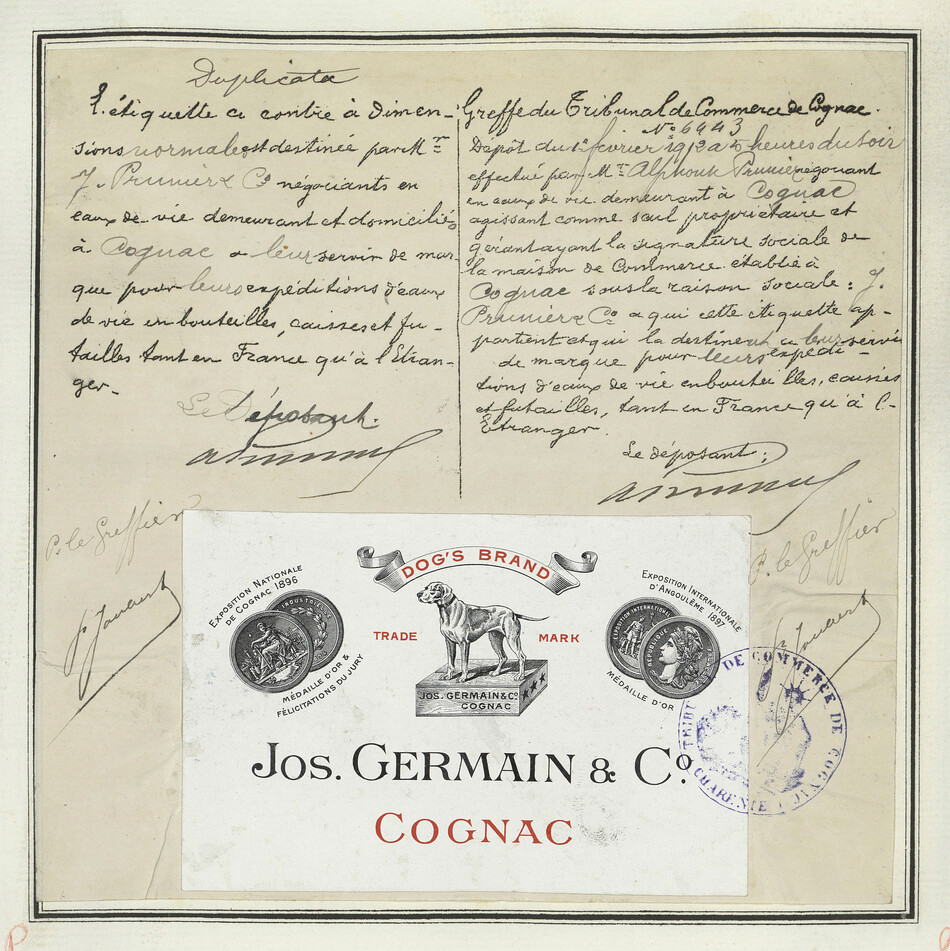 Duplicata
L'étiquette ci contre à Dimen-
sions normales est destinée par Mrs
J. Prunier & Co négociants en
eaux de vie demeurant et domiciliés
à Cognac a leur servir de mar-
que pour leurs expéditions d'eaux
de vie en bouteilles, caisses et fu-
tailles tant en France qu'à l'Etran-
ger.
Le Déposant.
P. le Greffier
Greffe du Tribunal de Commerce de Cognac.
No 6443
Dépôt du février 1912 a 5 heures du soir
effectué par Mr Alphonse Prunier négociant
en eaux de vie demeurant à Cognac
agissant comme seul propriétaire et
gérant ayant la signature sociale de
la maison de Commerce établie à
Cognac sous la raison sociale: J.
Prunier & Co a qui cette étiquette ap-
partient et qui la destinent a leur servir
de marque pour leurs expédi-
tions d'eaux de vie en bouteilles, caisses
et futailles, tant en France qu'à l'-
Etranger.
Le déposant:
P. le Greffier
DOG'S BRAND
EXPOSITION NATIONALE
DE COGNAC 1896
INDUSTRIEL
MÉDAILLE D'OR &
FÉLICITATIONS DU JURY
TRADE MARK
JOS. GERMAIN & Co.
COGNAC
EXPOSITION INTERNATIONALE
D'ANGOULÊME 1897
EXPOSITION INTERNATIONALE
RÉPUBLIQUE
MÉDAILLE D'OR
JOS. GERMAIN & Co.
COGNAC
DE COMMERCE DE COGNAC
CHARENTE